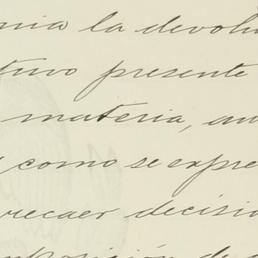 la devolu
tivo presente
materia, au
como se expre
recaer decisio